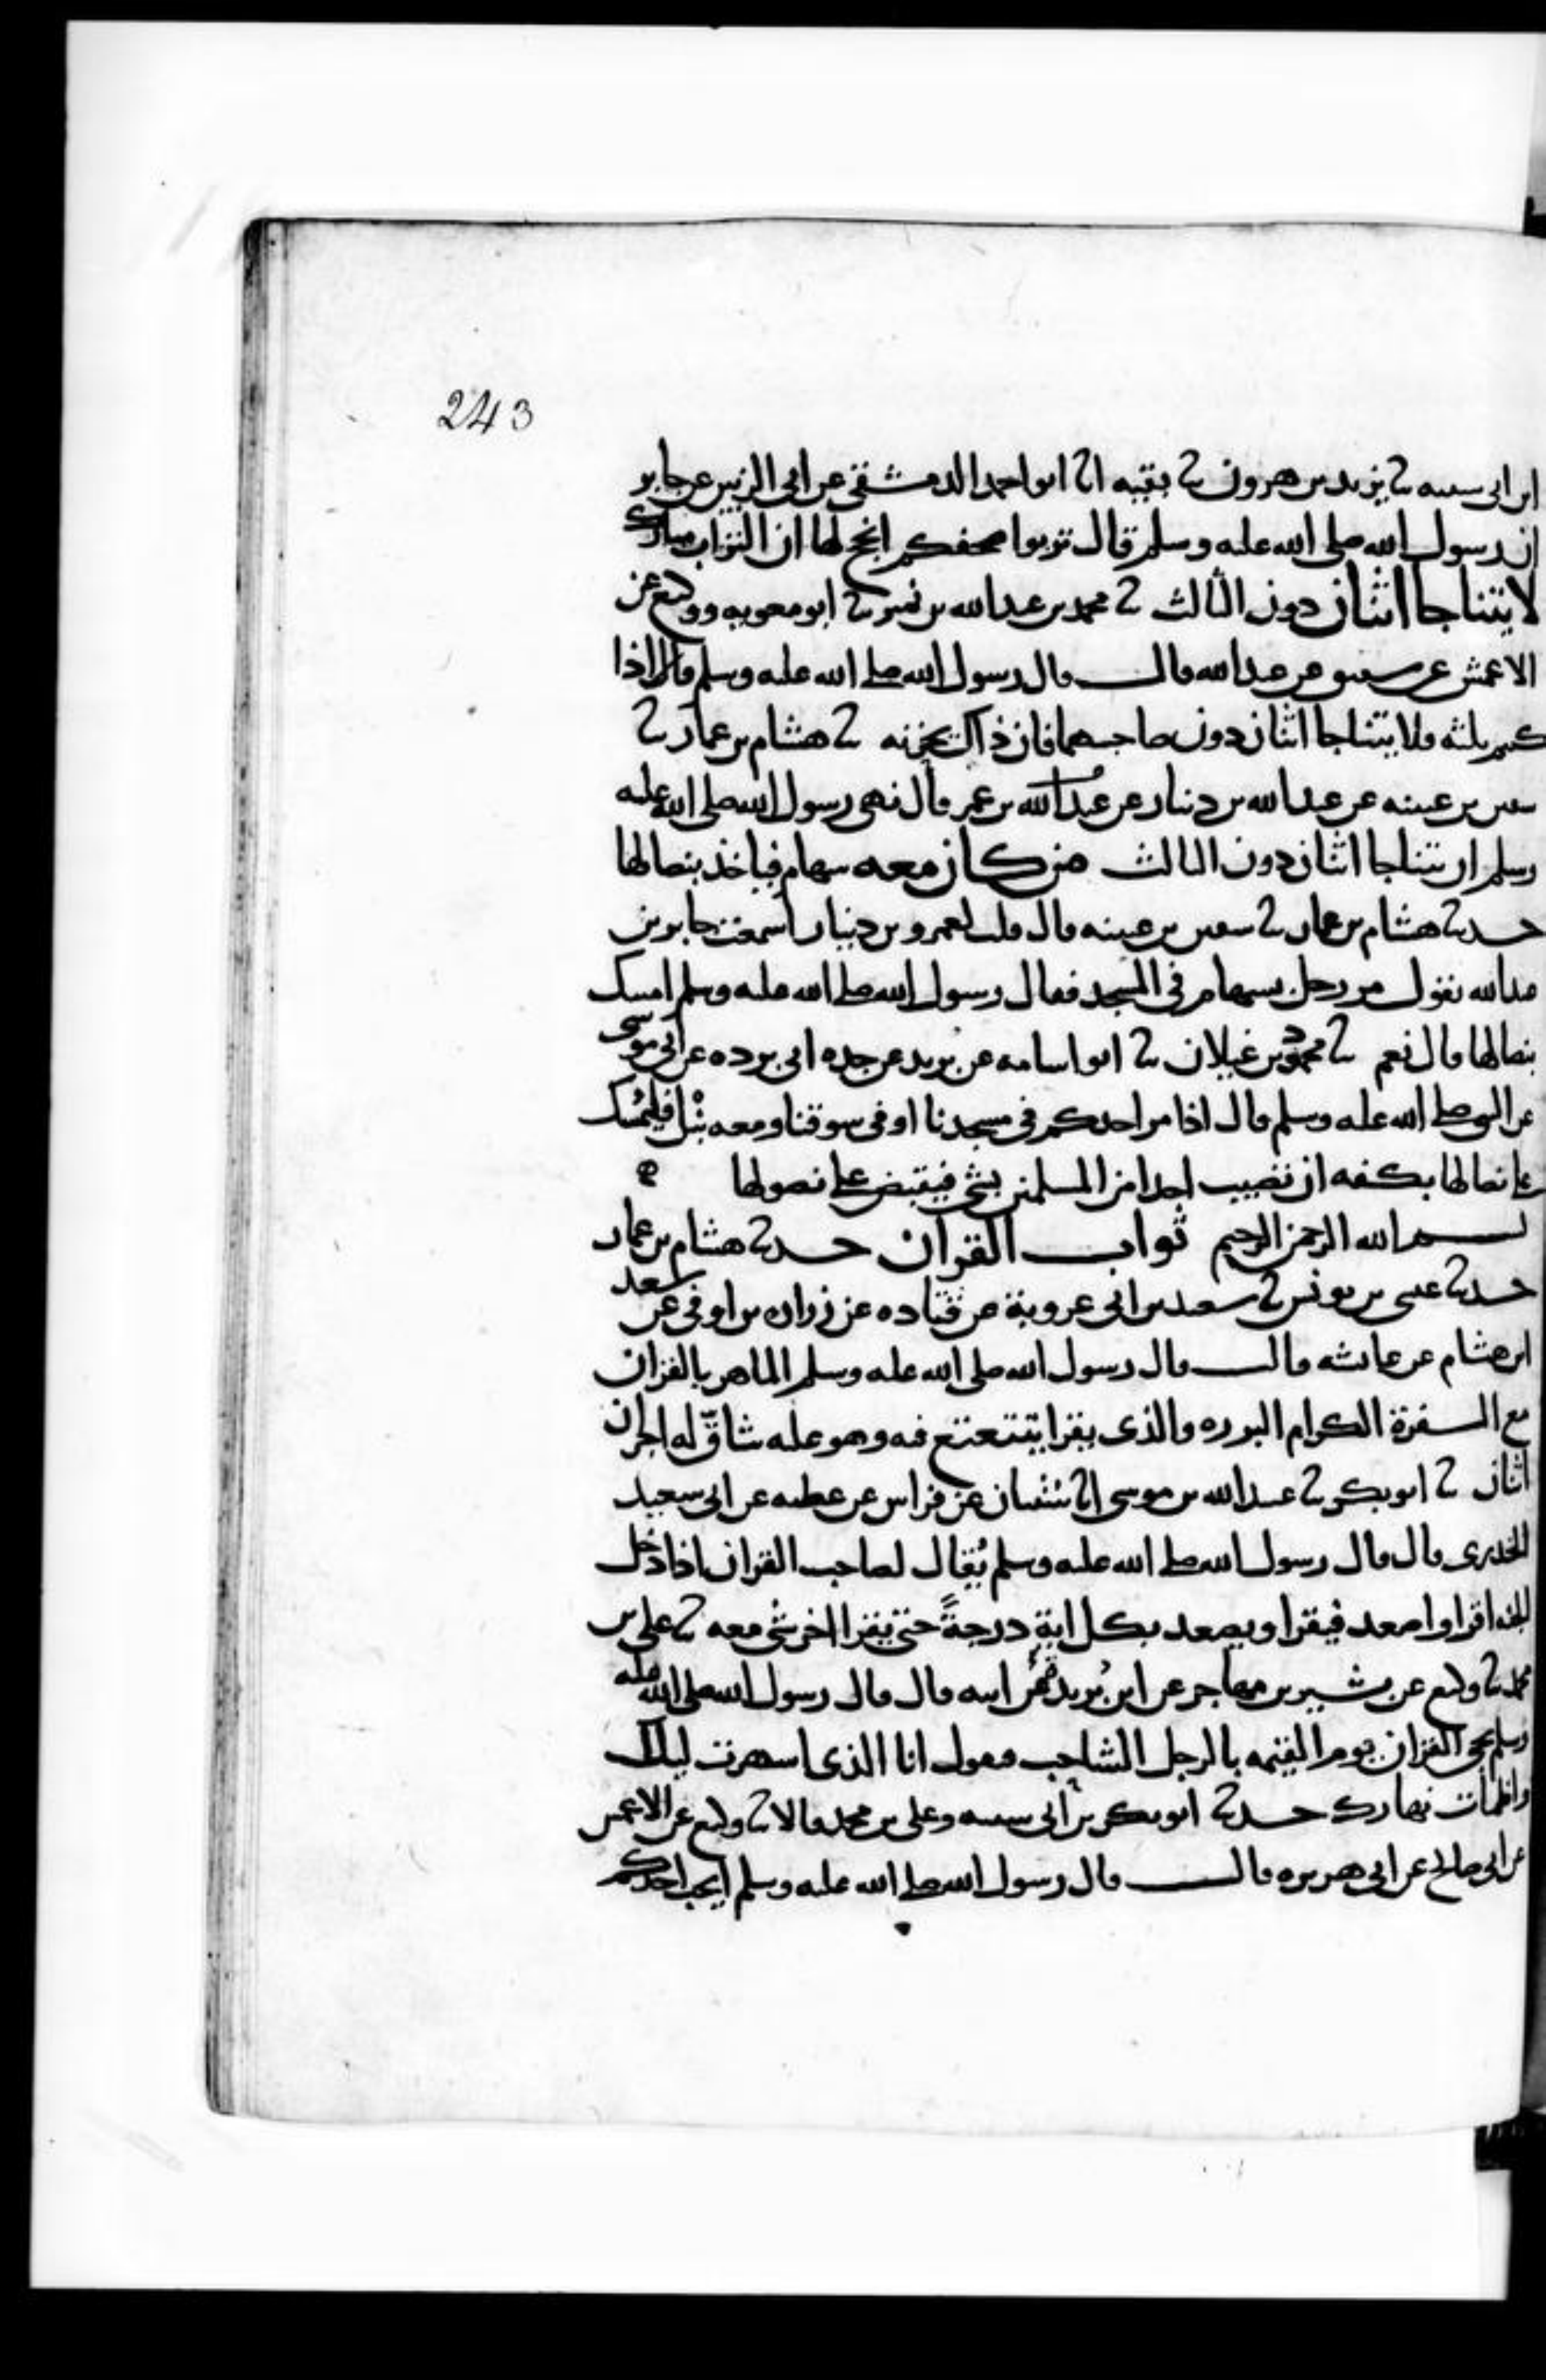 243
ابن ابى شيبه ثنا يزيد بن هرون ثنا بقيه انا ابو احمد الدمشقى عن ابى الزبير عن جابر
ان رسول الله صلى الله عليه وسلم قال تربوا صحفكم انجح لها ان التراب مبارك
لا يتناجا اثنان دون الثالث ثنا محمد بن عبد الله بن نمير ثنا ابو معويه ووكيع عن
الاعمش عن شقيق عن عبد الله قال قال رسول الله صلى الله عليه وسلم قال اذا
كنتم ثلثه فلا يتناجا اثنان دون صاحبهما فان ذلك يحزنه ثنا هشام بن عمار ثنا
سفين بن عيينه عن عبد الله بن دينار عن عبد الله بن عمر قال نهى رسول الله صلى الله عليه
وسلم ان يتناجا اثنان دون الثالث من كان معه سهام فياخذ بنصالها
حدثنا هشام بن عمار ثنا سفين بن عيينه قال قلت لعمرو بن دينار اسمعت جابر بن
عبد الله يقول مر رجل بسهام فى المسجد فقال رسول الله صلى الله عليه وسلم امسك
بنصالها قال نعم ثنا محمود بن غيلان ثنا ابو اسامه عن بريد عن جده ابى برده عن ابى موسى
عن النبى صلى الله عليه وسلم قال اذا مر احدكم فى مسجدنا او فى سوقنا ومعه نبل فليمسك
على نصالها بكفه ان تصيب احدا من المسلمين بشى فيقبض على نصولها
بسم الله الرحمن الرحيم ثواب القران حدثنا هشام بن عمار
حدثنا عيسى بن يونس ثنا سعيد بن ابى عروبة عن قتاده عن زراره بن اوفى عن سعد
ابن هشام عن عائشه قالت قال رسول الله صلى الله عليه وسلم الماهر بالقران
مع السفرة الكرام البرره والذى يقرا يتتعتع فيه وهو عليه شاقّ له اجران
اثنان ثنا ابو بكر ثنا عبيد الله بن موسى انا شيبان عن فراس عن عطيه عن ابى سعيد
الخدرى قال قال رسول الله صلى الله عليه وسلم يُقال لصاحب القران اذا دخل
الجنه اقرا واصعد فيقرا ويصعد بكل اية درجةً حتى يقرا اخر شى معه ثنا على بن
محمد ثنا وكيع عن بشير بن مهاجر عن ابن بُريده عن ابيه قال قال رسول الله صلى الله عليه
وسلم يجى القران يوم القيمه بالرجل الشاحب فيقول انا الذى اسهرت ليلك
واظمات نهارك حدثنا ابو بكر بن ابى شيبه وعلى بن محمد قالا ثنا وكيع عن الاعمش
عن ابى صالح عن ابى هريره قال قال رسول الله صلى الله عليه وسلم ايحب احدكم